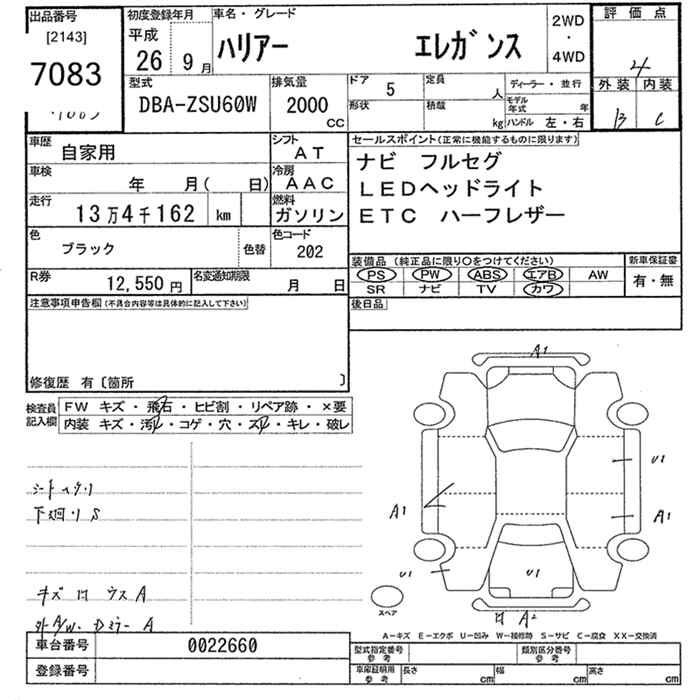 出品番号 初度登録年月 車名・グレード 評価点
[2143] 平成 2WD
7083 26 9月 ハリアー エレガンス ・ 4
4WD
型式 排気量 ドア 5 定員 人 ディーラー・並行 外装 内装
DBA-ZSU60W 2000 CC 形状 積載 kg モデル年式 年 B C
ハンドル 左・右
車歴 自家用 シフト AT セールスポイント(正常に機能するものに限ります)
車検 年 月( 日) 冷房 AAC ナビ フルセグ
走行 13万4千162 km 燃料 ガソリン LEDヘッドライト
ETC ハーフレザー
色 ブラック 色替 色コード 202
装備品(純正品に限り○をつけてください) 新車保証書
R券 12,550円 名変通知期限 月 日 PS PW ABS エアB AW 有・無
SR ナビ TV カワ
注意事項申告欄(不具合内容等は具体的に記入して下さい) 後日品
修復歴 有〔箇所 〕
検査員記入欄 FW キズ・飛石・ヒビ割・リペア跡・×要
内装 キズ・汚れ・コゲ・穴・スレ・キレ・破レ
A1
U1
シートヘタリ
下廻り S
A1 A1
U1 U1
キズ 凹 ウスA
スペア
凹 A2
外A/W. Dミラー A
A-キズ E-エクボ U-凹み W-補修跡 S-サビ C-腐食 XX-交換済
車台番号 0022660 型式指定番号 参考 類別区分番号 参考
登録番号 車庫証明用 参考 長さ cm 幅 cm 高さ cm